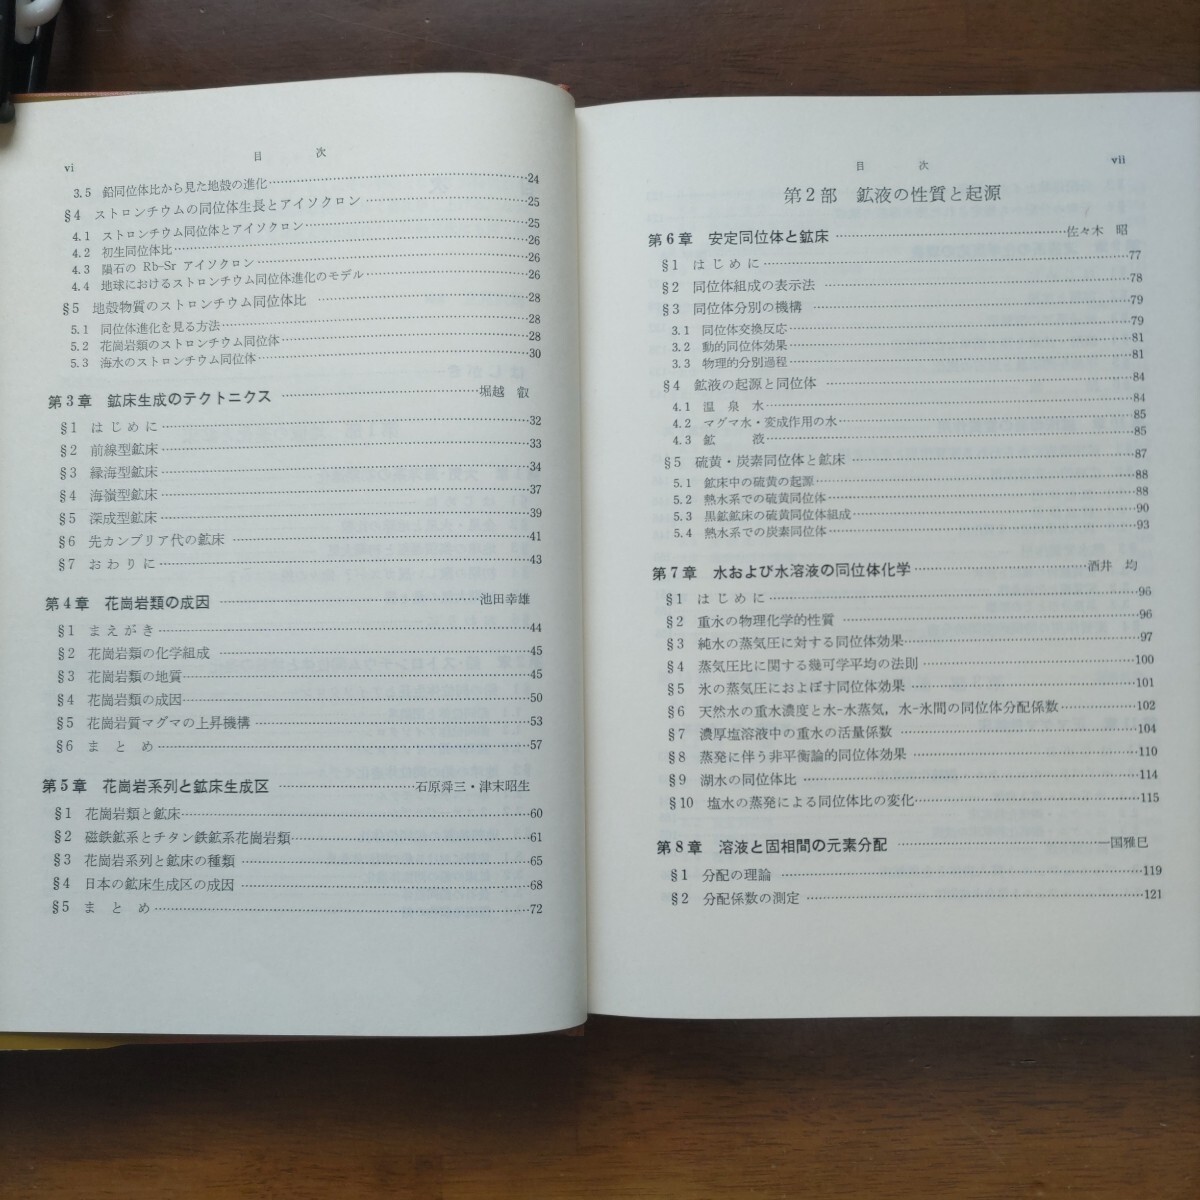 vi
目 次
3.5 鉛同位体比から見た地殻の進化……24
§4 ストロンチウムの同位体生長とアイソクロン……25
4.1 ストロンチウム同位体とアイソクロン……25
4.2 初生同位体比……26
4.3 隕石の Rb-Sr アイソクロン……26
4.4 地球におけるストロンチウム同位体進化のモデル……26
§5 地殻物質のストロンチウム同位体比……28
5.1 同位体進化を見る方法……28
5.2 花崗岩類のストロンチウム同位体……28
5.3 海水のストロンチウム同位体……30
第3章 鉱床生成のテクトニクス……堀越 叡
§1 はじめに……32
§2 前線型鉱床……33
§3 縁海型鉱床……34
§4 海嶺型鉱床……37
§5 深成型鉱床……39
§6 先カンブリア代の鉱床……41
§7 おわりに……43
第4章 花崗岩類の成因……池田幸雄
§1 まえがき……44
§2 花崗岩類の化学組成……45
§3 花崗岩類の地質……45
§4 花崗岩類の成因……50
§5 花崗岩質マグマの上昇機構……53
§6 まとめ……57
第5章 花崗岩系列と鉱床生成区……石原舜三・津末昭生
§1 花崗岩類と鉱床……60
§2 磁鉄鉱系とチタン鉄鉱系花崗岩類……61
§3 花崗岩系列と鉱床の種類……65
§4 日本の鉱床生成区の成因……68
§5 まとめ……72
目 次
vii
第2部 鉱液の性質と起源
第6章 安定同位体と鉱床……佐々木 昭
§1 はじめに……77
§2 同位体組成の表示法……78
§3 同位体分別の機構……79
3.1 同位体交換反応……79
3.2 動的同位体効果……81
3.3 物理的分別過程……81
§4 鉱液の起源と同位体……84
4.1 温泉水……84
4.2 マグマ水・変成作用の水……85
4.3 鉱 液……85
§5 硫黄・炭素同位体と鉱床……87
5.1 鉱床中の硫黄の起源……88
5.2 熱水系での硫黄同位体……88
5.3 黒鉱鉱床の硫黄同位体組成……90
5.4 熱水系での炭素同位体……93
第7章 水および水溶液の同位体化学……酒井 均
§1 はじめに……96
§2 重水の物理化学的性質……96
§3 純水の蒸気圧に対する同位体効果……97
§4 蒸気圧比に関する幾可学平均の法則……100
§5 氷の蒸気圧におよぼす同位体効果……101
§6 天然水の重水濃度と水-水蒸気，水-氷間の同位体分配係数……102
§7 濃厚塩溶液中の重水の活量係数……104
§8 蒸発に伴う非平衡論的同位体効果……110
§9 湖水の同位体比……114
§10 塩水の蒸発による同位体比の変化……115
第8章 溶液と固相間の元素分配……一国雅巳
§1 分配の理論……119
§2 分配係数の測定……121